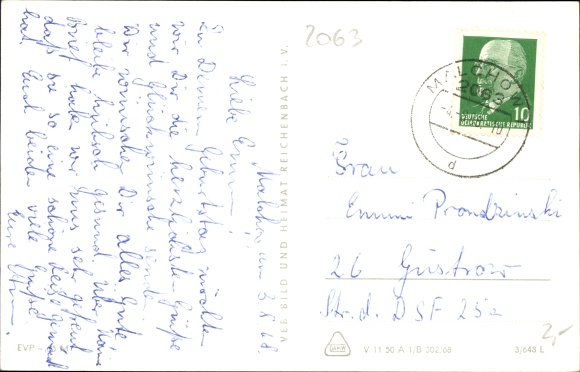 Malchow, am 3.5.68
Liebe Emmi!
Zu Deinem Geburtstag möchten
wir Dir die herzlichsten Grüße
und Glückwünsche senden.
Wir wünschen Dir alles Gute
bleibe hübsch gesund. Über Deinen
Brief habe wir uns sehr gefreut
daß es so eine schöne
hat. Euch beiden viele Grüße
Eure
VEB BILD UND HEIMAT REICHENBACH i. V.
EVP
2063
MALCHOW
2063
DEUTSCHE
DEMOKRATISCHE REPUBLIK
10
d
Frau
Emmi Prondzinski
26 Güstrow
Str. d. DSF 25a
V 11 50 A 1/B 302/68
3/648 L